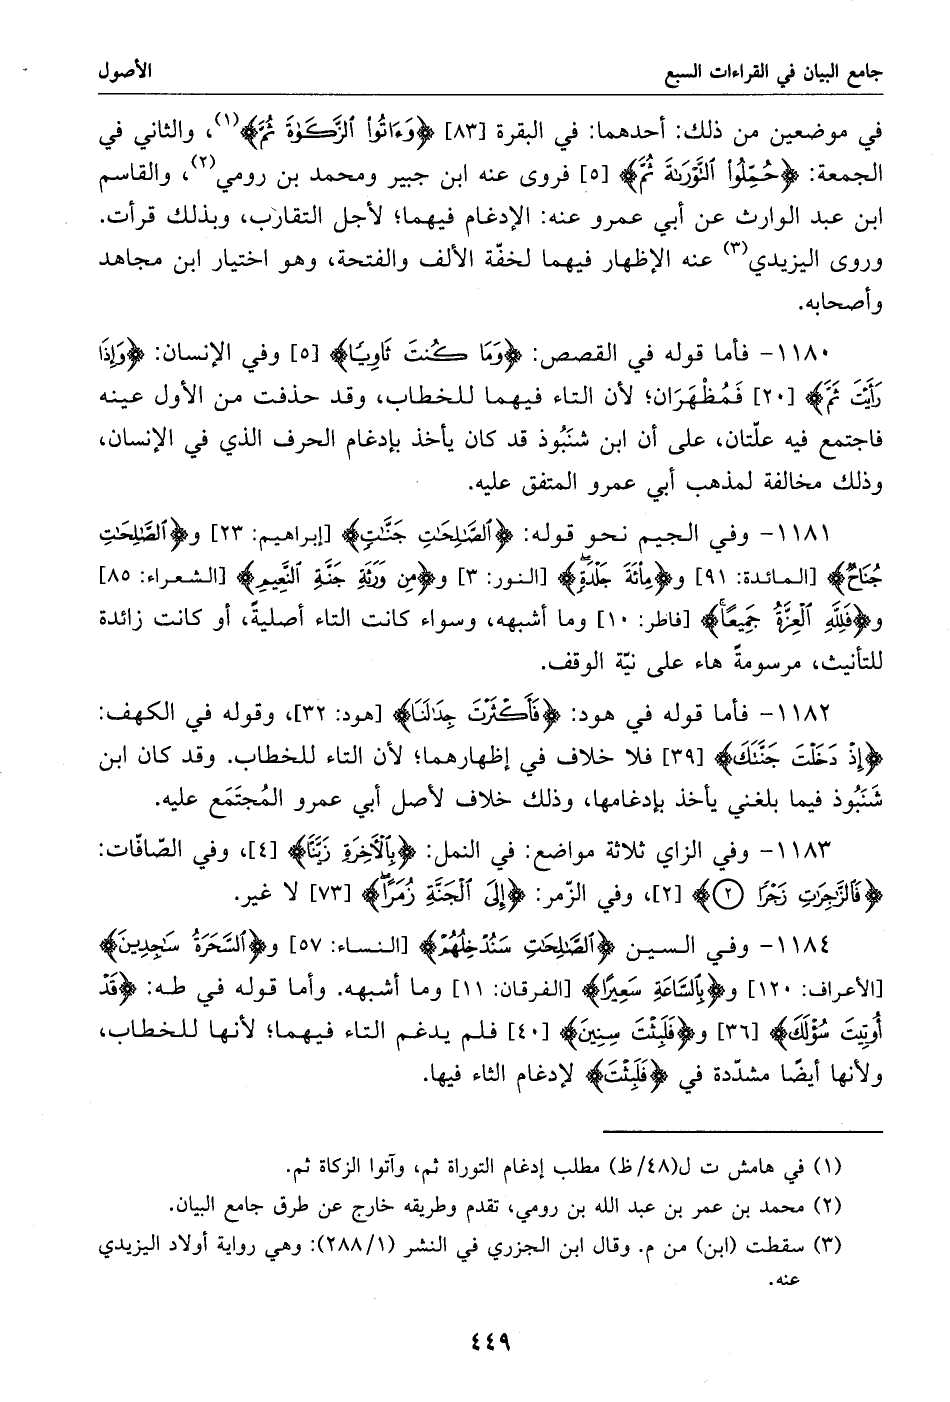 جامع البيان في القراءات السبع
الأصول
في موضعين من ذلك: أحدهما: في البقرة [٨٣] ﴿وَءَاتُوا۟ ٱلزَّكَوٰةَ ثُمَّ﴾(١)، والثاني في
الجمعة: ﴿حُمِّلُوا۟ ٱلتَّوْرَىٰةَ ثُمَّ﴾ [٥] فروى عنه ابن جبير ومحمد بن رومي(٢)، والقاسم
ابن عبد الوارث عن أبي عمرو عنه: الإدغام فيهما؛ لأجل التقارب، وبذلك قرأت.
وروى اليزيدي(٣) عنه الإظهار فيهما لخفّة الألف والفتحة، وهو اختيار ابن مجاهد
وأصحابه.
١١٨٠- فأما قوله في القصص: ﴿وَمَا كُنتَ ثَاوِيًا﴾ [٥] وفي الإنسان: ﴿وَإِذَا
رَأَيْتَ ثَمَّ﴾ [٢٠] فَمُظْهَرَان؛ لأن التاء فيهما للخطاب، وقد حذفت من الأول عينه
فاجتمع فيه علّتان، على أن ابن شنَبُوذ قد كان يأخذ بإدغام الحرف الذي في الإنسان،
وذلك مخالفة لمذهب أبي عمرو المتفق عليه.
١١٨١- وفي الجيم نحو قوله: ﴿ٱلصَّٰلِحَٰتِ جَنَّٰتٍ﴾ [إبراهيم: ٢٣] و﴿ٱلصَّٰلِحَٰتِ
جُنَاحٌ﴾ [المائدة: ٩١] و﴿مِا۟ئَةَ جَلْدَةٍۖ﴾ [النور: ٣] و﴿مِن وَرَثَةِ جَنَّةِ ٱلنَّعِيمِ﴾ [الشعراء: ٨٥]
و﴿فَلِلَّهِ ٱلْعِزَّةُ جَمِيعًاۚ﴾ [فاطر: ١٠] وما أشبهه، وسواء كانت التاء أصليةً، أو كانت زائدة
للتأنيث، مرسومةً هاء على نيّة الوقف.
١١٨٢- فأما قوله في هود: ﴿فَأَكْثَرْتَ جِدَٰلَنَا﴾ [هود: ٣٢]، وقوله في الكهف:
﴿إِذْ دَخَلْتَ جَنَّتَكَ﴾ [٣٩] فلا خلاف في إظهارهما؛ لأن التاء للخطاب. وقد كان ابن
شَنَبُوذ فيما بلغني يأخذ بإدغامها، وذلك خلاف لأصل أبي عمرو المُجتَمَع عليه.
١١٨٣- وفي الزاي ثلاثة مواضع: في النمل: ﴿بِٱلْـَٔاخِرَةِ زَيَّنَّا﴾ [٤]، وفي الصّافّات:
﴿فَٱلزَّٰجِرَٰتِ زَجْرًا ٢﴾ [٢]، وفي الزّمر: ﴿إِلَى ٱلْجَنَّةِ زُمَرًاۖ﴾ [٧٣] لا غير.
١١٨٤- وفي السين ﴿ٱلصَّٰلِحَٰتِ سَنُدْخِلُهُمْ﴾ [النساء: ٥٧] و﴿ٱلسَّحَرَةُ سَٰجِدِينَ﴾
[الأعراف: ١٢٠] و﴿بِٱلسَّاعَةِ سَعِيرًا﴾ [الفرقان: ١١] وما أشبهه. وأما قوله في طه: ﴿قَدْ
أُوتِيتَ سُؤْلَكَ﴾ [٣٦] و﴿فَلَبِثْتَ سِنِينَ﴾ [٤٠] فلم يدغم التاء فيهما؛ لأنها للخطاب،
ولأنها أيضًا مشدّدة في ﴿فَلَبِثْتَ﴾ لإدغام الثاء فيها.
(١) في هامش ت ل(٤٨/ظ) مطلب إدغام التوراة ثم، وآتوا الزكاة ثم.
(٢) محمد بن عمر بن عبد الله بن رومي، تقدم وطريقه خارج عن طرق جامع البيان.
(٣) سقطت (ابن) من م. وقال ابن الجزري في النشر (٢٨٨/١): وهي رواية أولاد اليزيدي
عنه.
٤٤٩